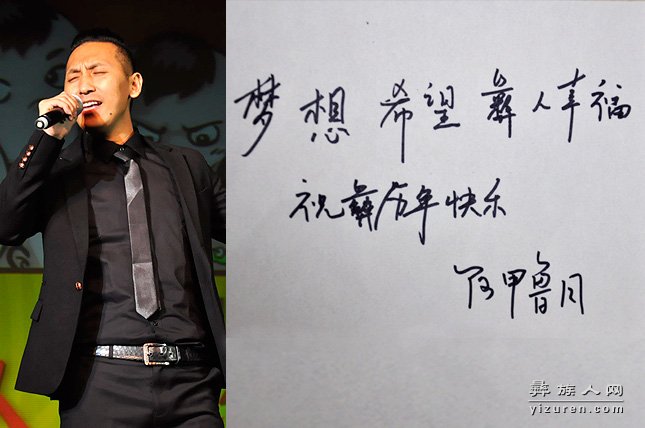 梦想 希望 彝人幸福
祝彝历年快乐
阿甲鲁月
彝族人网
yizuren.com